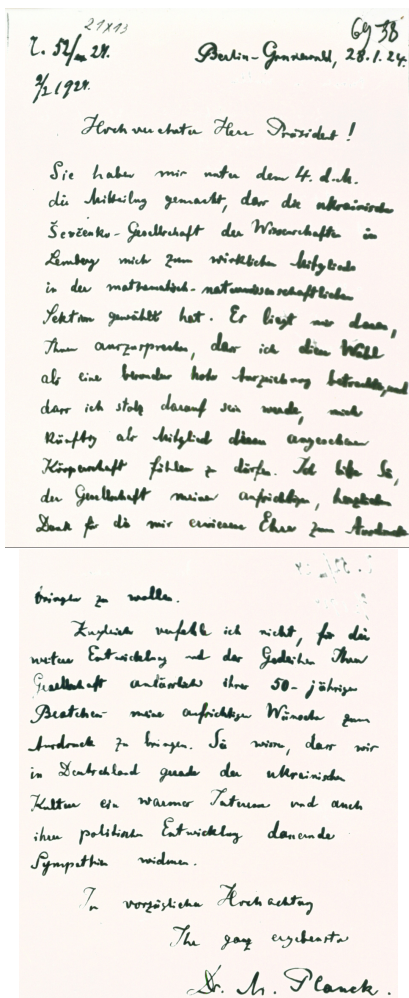 21x13
69 38
Z. 52/m 24. Berlin-Grunewald, 28.1.24.
2/2 1924.
Hochverehrter Herr Präsident!
Sie haben mir unter dem 4. d. M.
die Mitteilung gemacht, dass die ukrainische
Ševčenko-Gesellschaft der Wissenschaften in
Lemberg mich zum wirklichen Mitglied
in der mathematisch-naturwissenschaftlichen
Sektion gewählt hat. Es liegt mir daran,
Ihnen auszusprechen, dass ich diese Wahl
als eine besonders hohe Auszeichnung betrachte, und
dass ich stolz darauf sein werde, mich
künftig als Mitglied dieser angesehenen
Körperschaft fühlen zu dürfen. Ich bitte Sie,
der Gesellschaft meinen aufrichtigen, herzlichen
Dank für die mir erwiesene Ehre zum Ausdruck
bringen zu wollen.
Zugleich verfehle ich nicht, für die
weitere Entwicklung und das Gedeihen Ihrer
Gesellschaft anlässlich ihres 50-jährigen
Bestehens meine aufrichtigen Wünsche zum
Ausdruck zu bringen. Sie wissen, dass wir
in Deutschland gerade der ukrainischen
Kultur ein warmes Interesse und auch
ihrer politischen Entwicklung dauernde
Sympathien widmen.
In vorzüglicher Hochachtung
Ihr ganz ergebenster
Dr. M. Planck.